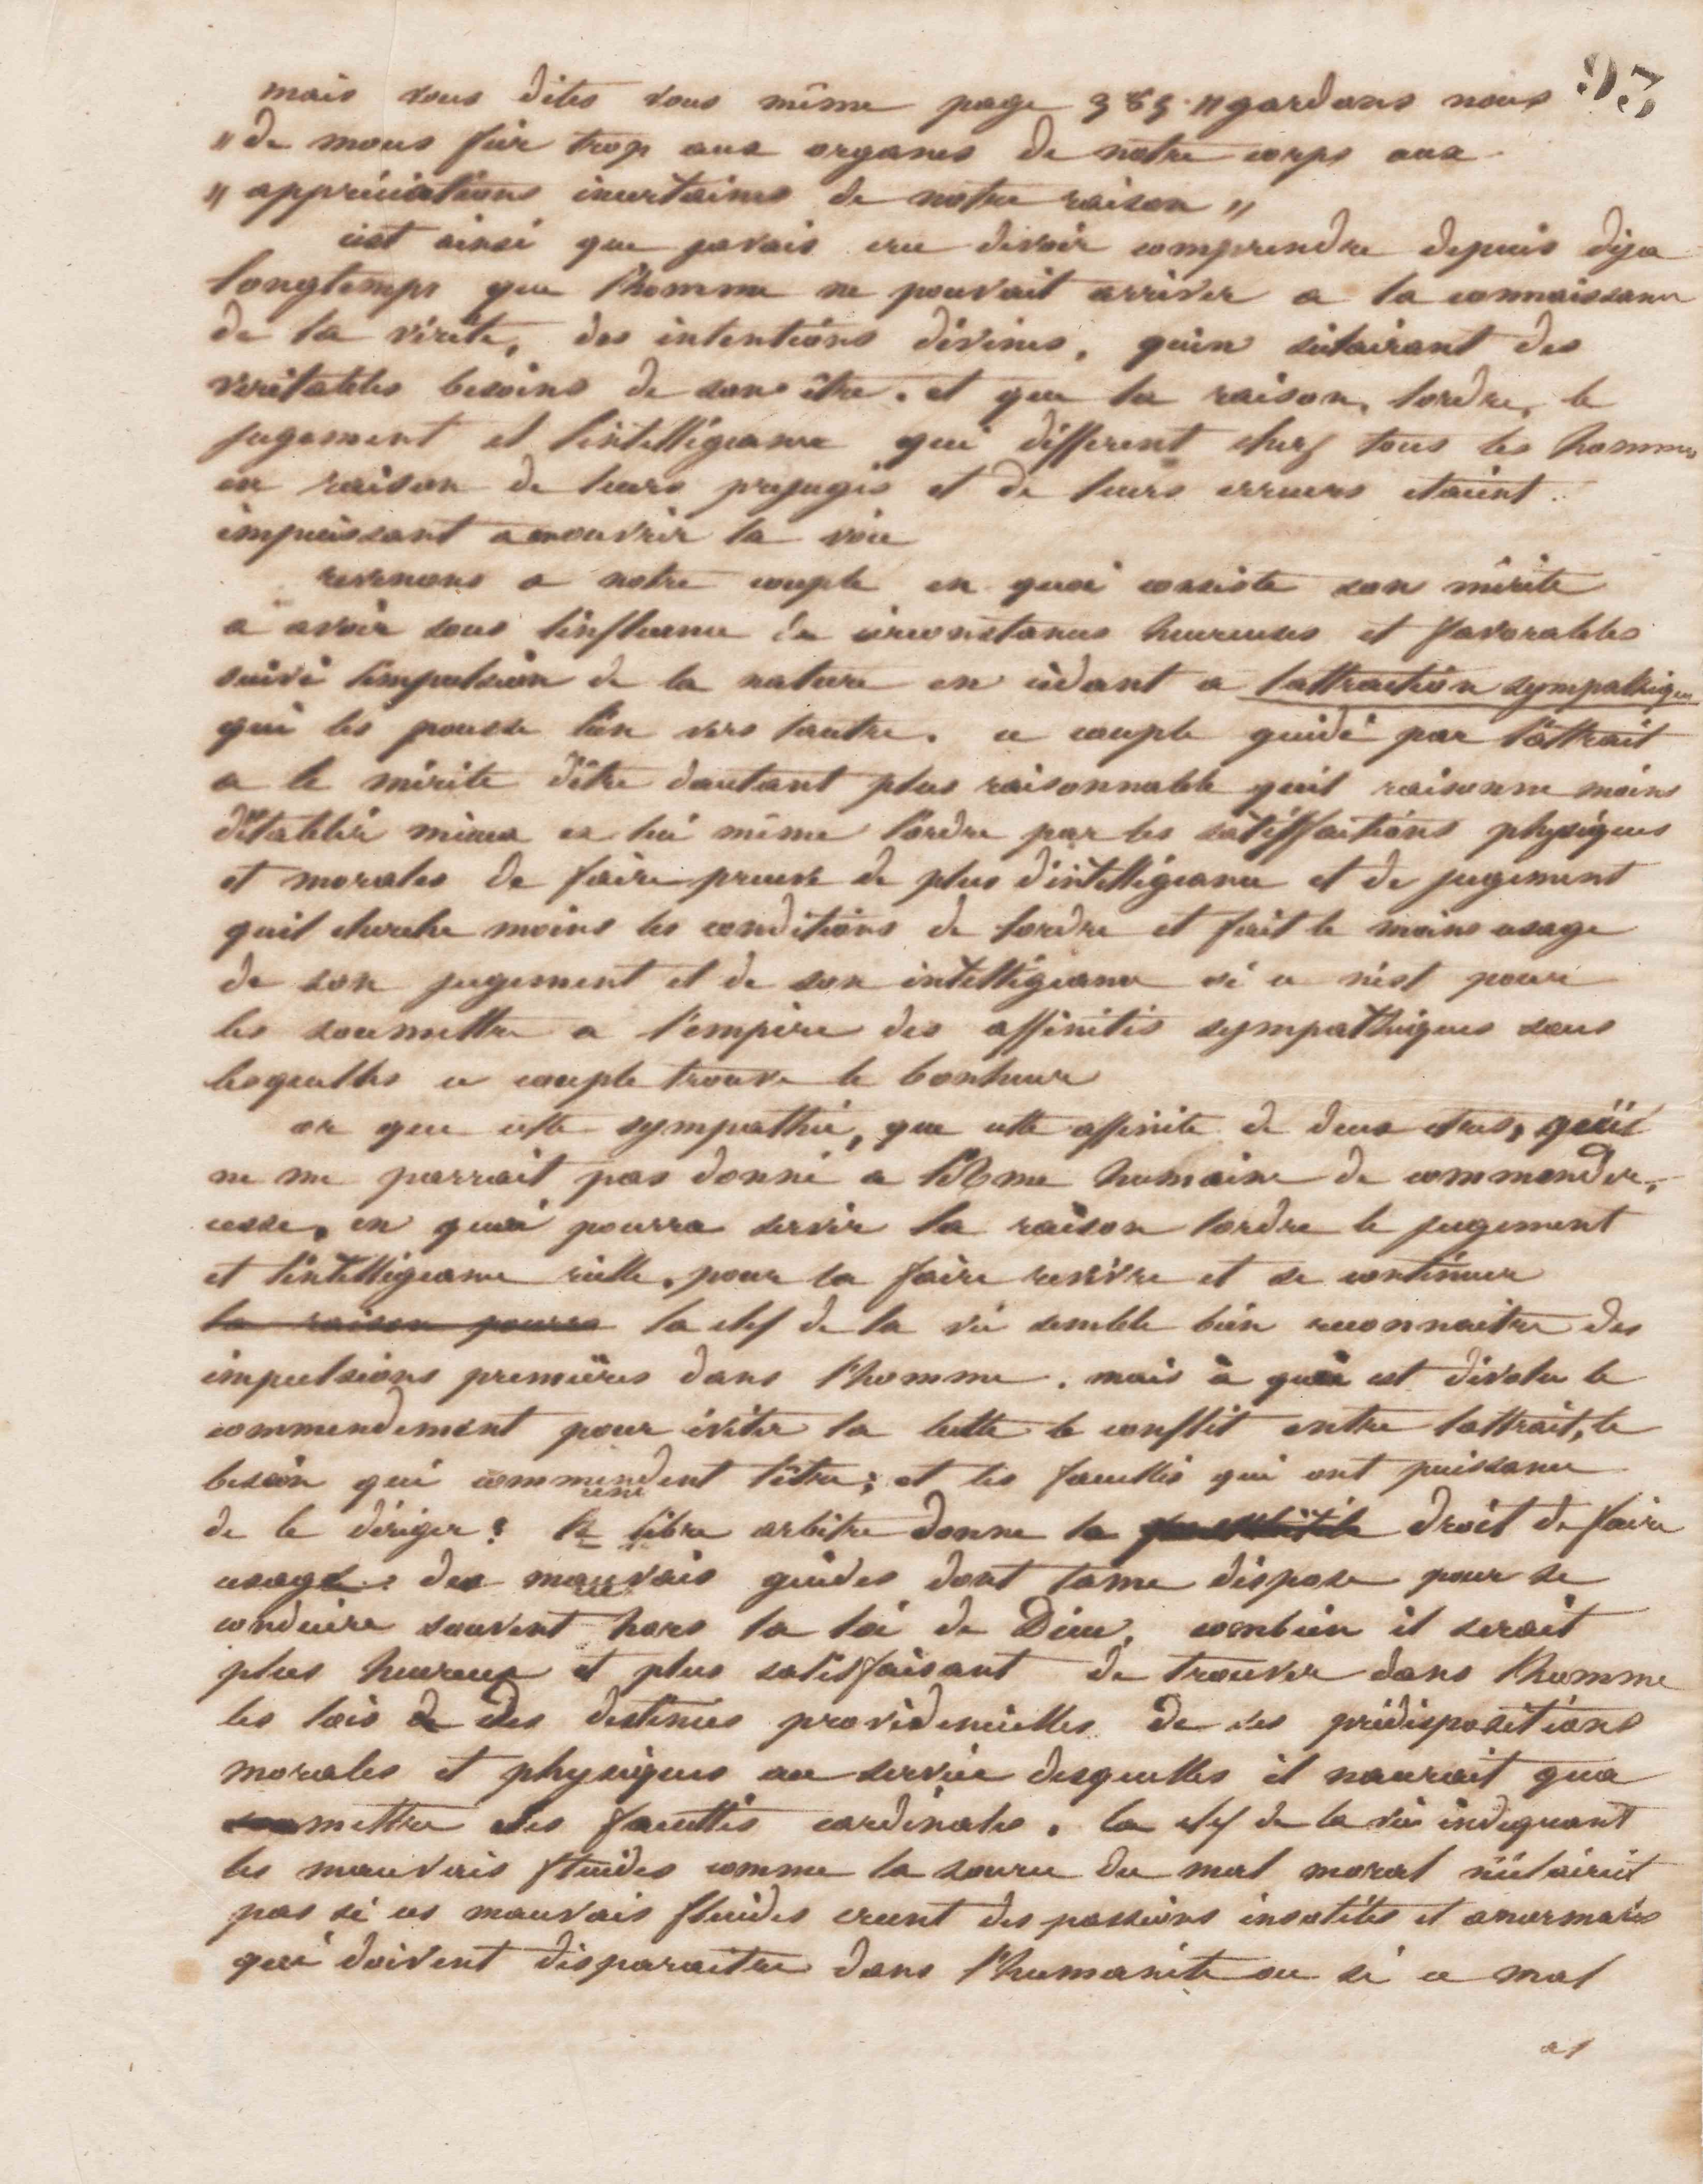 93
mais vous dites vous même page 383. "gardons nous
"de nous fier trop aux organes de notre corps aux
"appréciations incertaines de notre raison"
cest ainsi que javais cru devoir comprendre depuis déja
longtemps que l'homme ne pouvait arriver a la connaissance
de la vérité, des intentions divines, quen séclairant des
veritables besoins de son être. et que la raison, lordre, le
jugement et lintelligeance qui différent chez tous les hommes
en raison de leurs prejugés et de leurs erreurs etaient
impuissant a en ouvrir la voie
revenons a notre couple en quoi consiste son mérite
a avoir sous linfluence de circonstances heureuses et favorables
suivi limpulsion de la nature en cédant a lattraction sympathique
qui les pousse lun vers lautre. ce couple guidé par lattrait
a le mérite dêtre dautant plus raisonnable quil raisonne moins
détablir mieux en lui même lordre par les satisffactions physiques
et morales de faire preuve de plus dintelligeance et de jugement
quil cherche moins les conditions de lordre et fait le moins usage
de son jugement et de son intelligeance si ce nest pour
les soumettre a l'empire des affinités sympathiques sous
lesquelles ce couple trouve le bonheur
or que cette sympathie, que cette affinite de deux etres, quil
ne me parrait pas donné a l'âme humaine de commender,
cesse, en quoi pourra servir la raison lordre le jugement
et lintelligeance réelle, pour la faire revivre et se continuer
la raison pourra la clef de la vie semble bien reconnaitre des
impulsions premières dans l'homme. mais à quoi est dévolu le
commendement pour éviter la lutte le conflit entre lattrait, le
besoin qui commendent lêtre; et les facultés qui ont puissance
de le diriger? le libre arbitre donne le droit de faire
usage des mauvais guides dont lame dispose pour se
conduire souvent hors la loi de Dieu, combien il serait
plus heureux et plus satisfaisant de trouver dans l'homme
les lois de des destinées providencielles de ses prédispositions
morales et physiques au service desquelles il naurait qua
mettre ses facultés cardinales. la clef de la vie indiquant
les mauvais fluides comme la source du mal moral néclaircit
pas si ces mauvais fluides creent des passions inutiles et anormales
qui doivent disparaitre dans l'humanité ou si ce mal